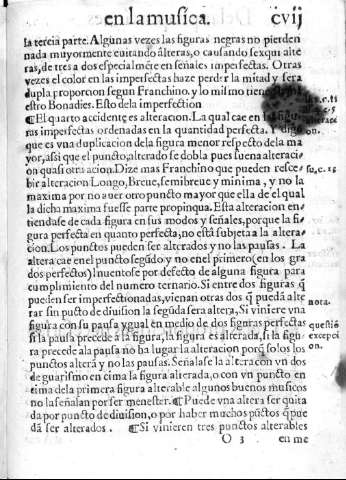 en la musica. cvij
la tercia parte. Algunas vezes las figuras negras no pierden
nada mayormente euitando álteras, o causando sexqui alte
ras, de tres a dos especialmẽte en señales imperfectas. Otras
vezes el color en las imperfectas haze perder la mitad y sera
dupla proporcion segun Franchino. y lo mismo tiene
estro Bonadies. Esto dela imperfection
¶El quarto accidente es alteracion. La qual cae en la figu
ras imperfectas ordenadas en la quantidad perfecta. Y digo
que es vna duplicacion dela figura menor respecto dela ma
yor, assi que el puncto, alterado se dobla pues suena alteracion
quasi otra acion. Dize mas Franchino que pueden resce
bir alteracion Longo, Breue, semibreue y minima, y no la
maxima por no auer otro puncto mayor que ella de el qual
la dicha maxima fuesse parte propinqua. Esta alteracion en-
tiendase de cada figura en sus modos y señales, porque la fi-
gura perfecta en quanto perfecta, no está subjeta a la altera-
cion. Los punctos pueden ser alterados y no las pausas. La
altera cae enel pũcto segũdo y no enel primero (en los gra
dos perfectos) inuentose por defecto de alguna figura para
cumplimiento del numero ternario. Si entre dos figuras q̃
pueden ser imperfectionadas, vienan otras dos q̃ puedã alte
rar sin pũcto de diuision la segũda sera altera, Si viniere vna
figura con su pausa ygual en medio de dos figuras perfectas
si la pausa precede à la figura, la figura es alterada, si la figu
ra precede ala pausa no ha lugar la alteracion porq̃ solos los
punctos alterã y no las pausas. Señalase la altera con vn dos
de guarismo en cima la figura alterada, o con vn puncto en
cima dela primera figura alterable algunos buenos musicos
no la señalan por ser menester. ¶Puede vna altera ser quita
da por puncto de diuision, o por haber muchos pũctos q̃ pue
dã ser alterados. ¶Si vinieren tres punctos alterables
nota.
questiõ
excepci
on.
O 3 en me